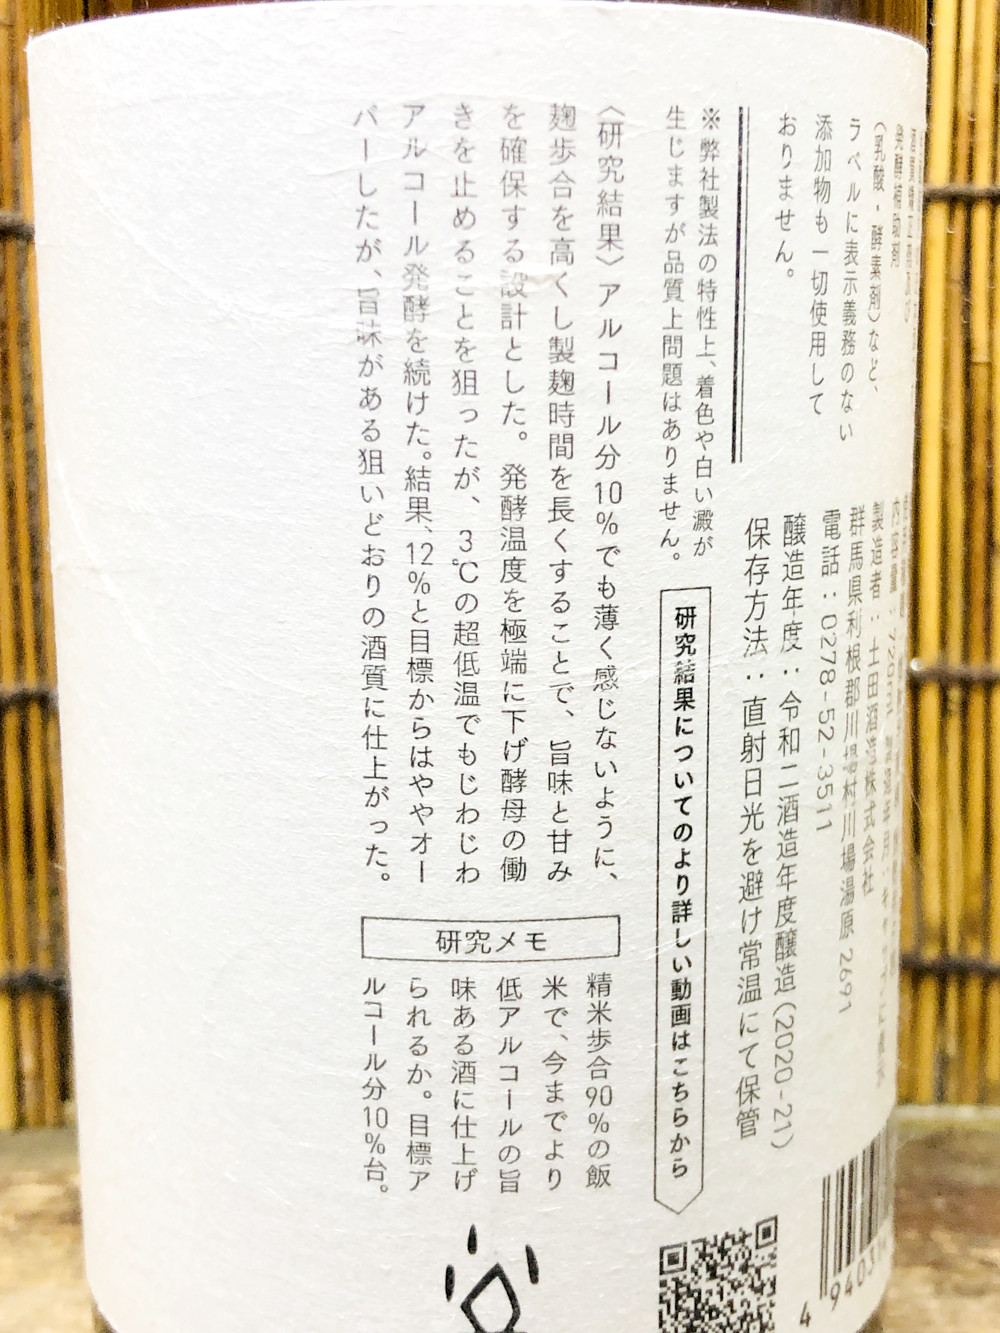 発酵補助剤
(乳酸・酵素剤)など、
ラベルに表示義務のない
添加物も一切使用して
おりません。
製造者：土田酒造株式会社
群馬県利根郡川場村川場湯原 2691
電話：0278-52-3511
醸造年度：令和二酒造年度醸造(2020-21)
保存方法：直射日光を避け常温にて保管
※弊社製法の特性上、着色や白い澱が
生じますが品質上問題はありません。
研究結果についてのより詳しい動画はこちらから
〈研究結果〉アルコール分10%でも薄く感じないように、
麹歩合を高くし製麹時間を長くすることで、旨味と甘み
を確保する設計とした。発酵温度を極端に下げ酵母の働
きを止めることを狙ったが、3℃の超低温でもじわじわ
アルコール発酵を続けた。結果、12%と目標からはややオー
バーしたが、旨味がある狙いどおりの酒質に仕上がった。
研究メモ
精米歩合90%の飯
米で、今までより
低アルコールの旨
味ある酒に仕上げ
られるか。目標ア
ルコール分10%台。